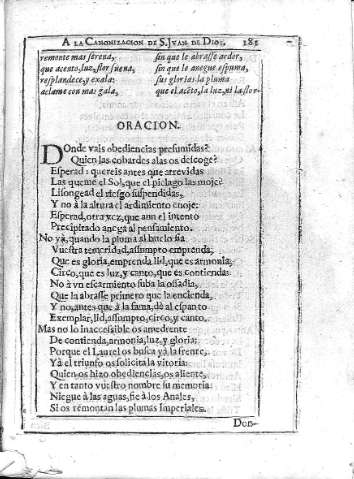 A LA CANONIZACION DE S. IVAN DE DIOS. 285
remonte mas serena,
que acento, luz, flor suena,
resplandece, y exala:
aclame con mas gala,
sin que le abrasse ardor,
sin que le anegue espuma,
sus glorias la pluma
que el la luz, ni la flor.
ORACION.
DOnde vais obediencias presumidas?
Quien las cobardes alas os descoge?
Esperad: quereis antes que atrevidas
Las queme el Sol, que el pielago las moje?
Lisongead el riesgo suspendidas,
Y no à la altura el ardimiento enoje:
Esperad, otra vez, que aun el intento
Precipitado anega al pensamiento.
No yà, quando la pluma al buelo fia
Vuestra temeridad, assumpto emprenda;
Que es gloria, emprenda lid, que es armonia;
Circo, que es luz, y canto, que es contienda:
No à vn escarmiento suba la ossadia,
Que la abrasse primero que la encienda,
Y no, antes que à la fama, dè al espanto
Exemplar, lid, assumpto, circo, y canto.
Mas no lo inaccessible os amedrente
De contienda, armonia, luz, y gloria:
Porque el Laurel os busca yà la frente,
Yà el triunfo os solicita la vitoria:
Quien os hizo obediencias, os aliente,
Y en tanto vuestro nombre su memoria
Niegue à las aguas, fie à los Anales,
Si os remontan las plumas Imperiales.
Don-